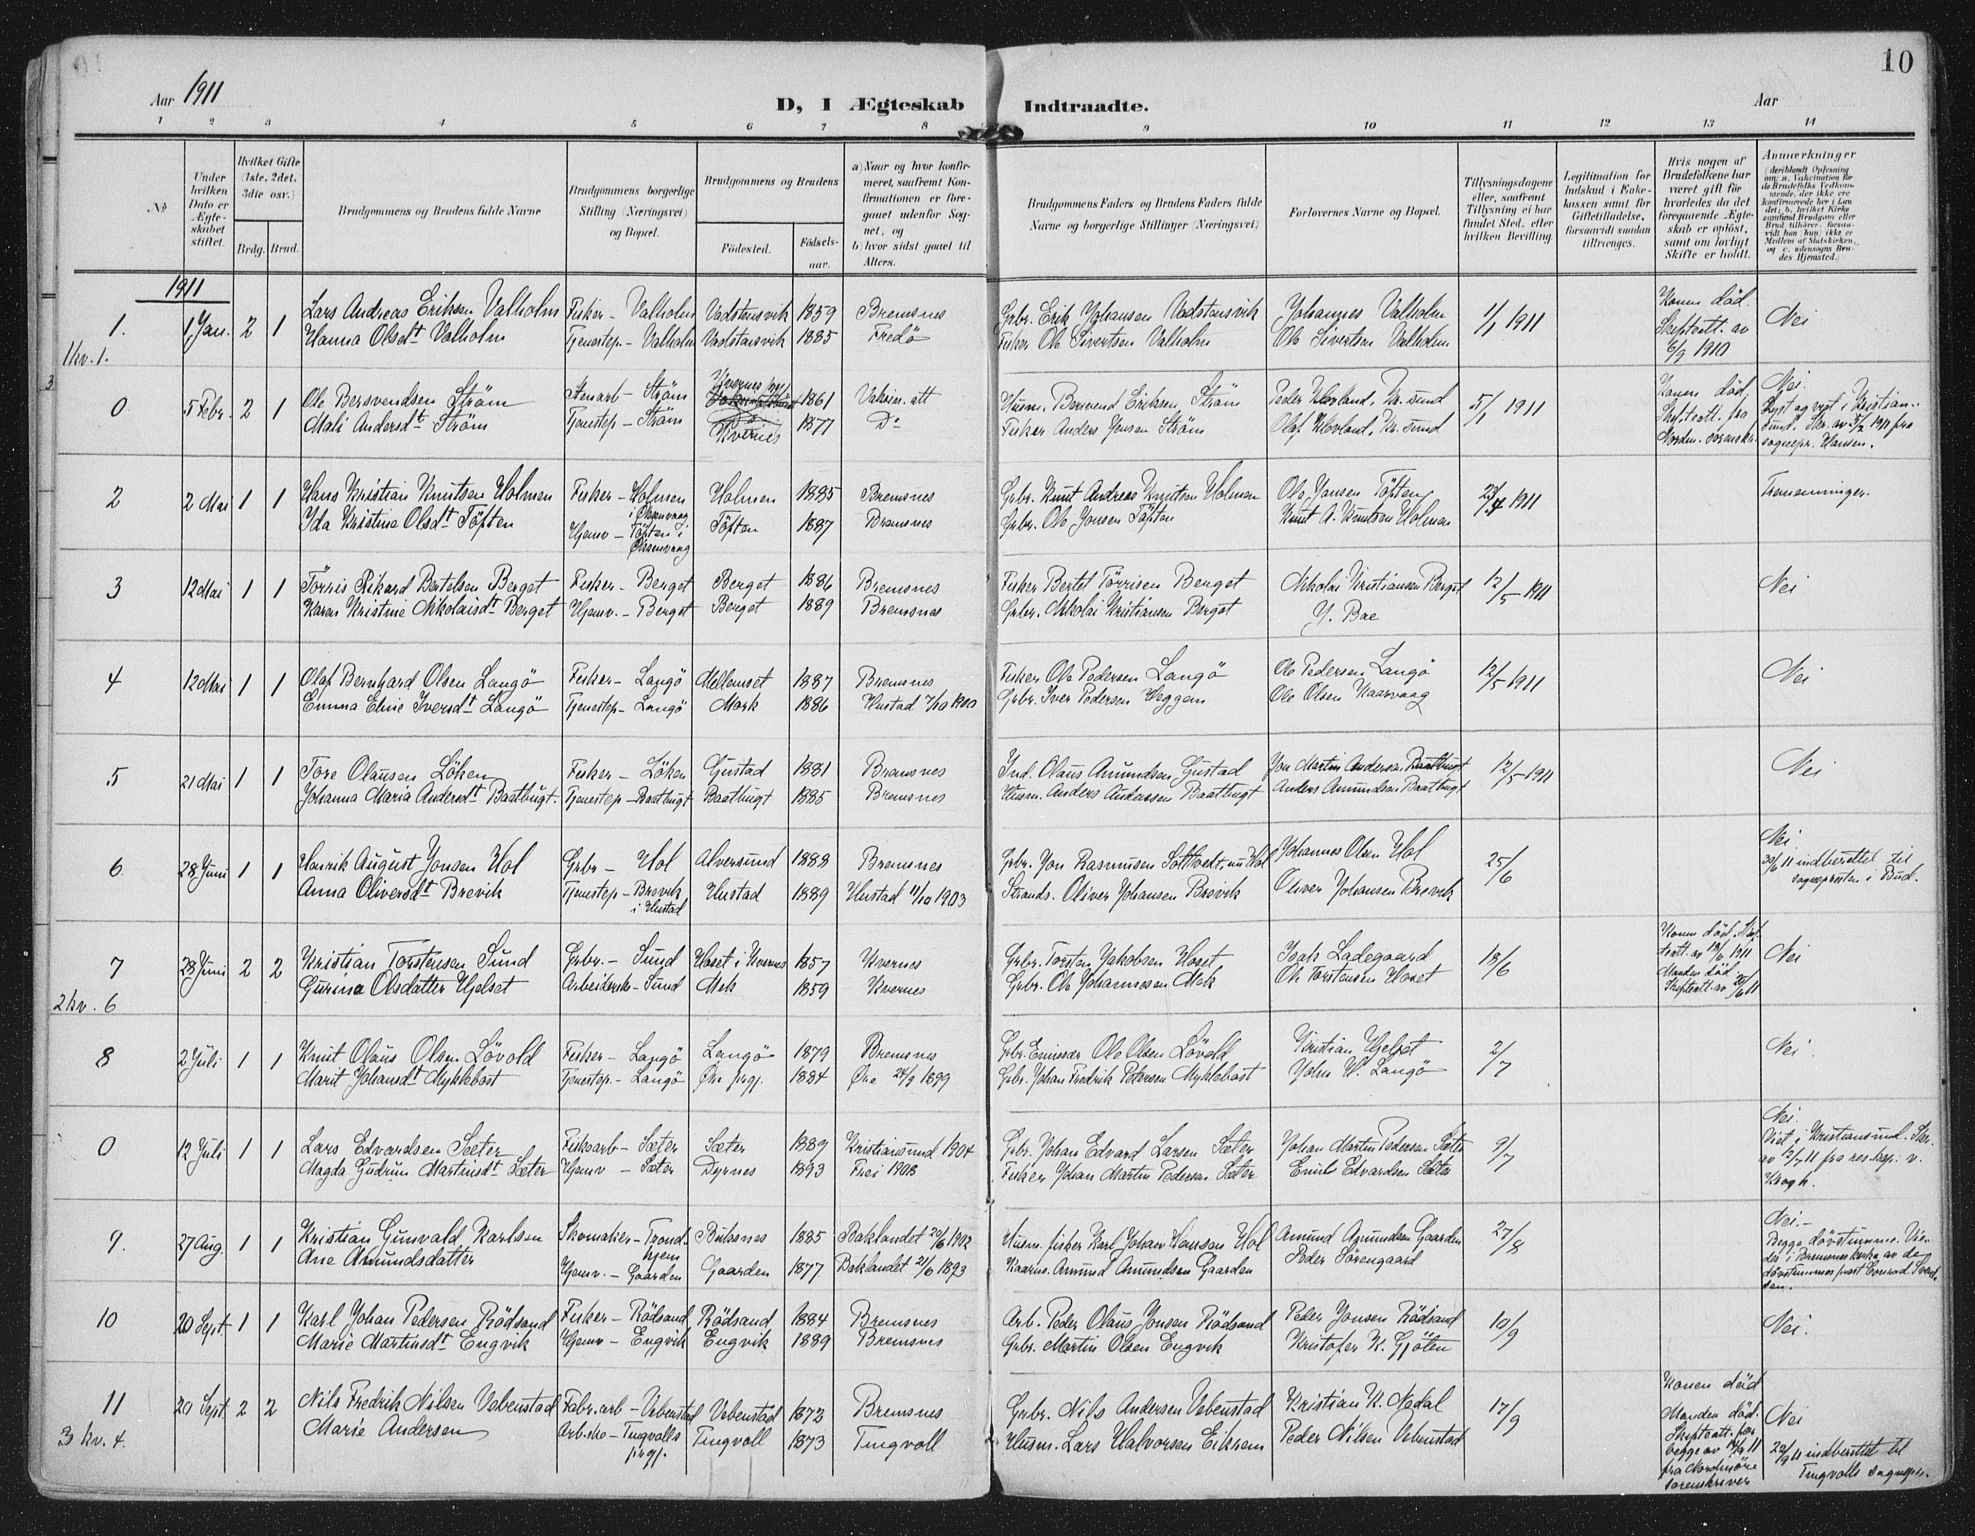 10
Aar 1911
D, I Ægteskab Indtraadte.
Aar
1 2 3 4 5 6 7 8 9 10 11 12 13 14
No
Under hvilken Dato er Ægteskabet stiftet.
Hvilket Gifte (1ste, 2det, 3die osv.)
Brdg. Brud.
Brudgommens og Brudens fulde Navne
Brudgommens borgerlige Stilling (Næringsvei) og Bopæl.
Brudgommens og Brudens
Fødested. Fødselsaar.
a) Naar og hvor konfirmeret, saafremt Konfirmationen er foregaaet udenfor Sognet, og
b) hvor sidst gaaet til Alters.
Brudgommens Faders og Brudens Faders fulde Navne og borgerlige Stillinger (Næringsvei)
Forlovernes Navne og Bopæl.
Tillysningsdagene eller, saafremt Tillysning ei har fundet Sted, efter hvilken Bevilling.
Legitimation for Indskud i Enkekassen samt for Giftetilladelse, forsaavidt saadan tiltrænges.
Hvis nogen af Brudefolkene har været gift før hvorledes da det foregaaende Ægteskab er opløst, samt om lovligt Skifte er holdt.
Anmerkninger
1911
1. 1 Jan. 2 1 Lars Andreas Eriksen Valholm Fisker - Valholm Vadstensvik 1859 Bremsnes Grbr. Erik Johansen Vadstensvik Johannes Valholm 1/1 1911 Konen død. Skifteatt. av 6/9 1910 Nei
Hanna Olsdt Valholm Tjenestep - Valholm Vadstensvik 1885 Fredø Fisker Ole Sivertsen Valholm Ole Sivertsen Valholm
1kv. 1.
0 5 Febr. 2 1 Ole Bersvendsen Strøm Stenarb - Strøm 1861 Vaksin. att Husm. Bersvend Eriksen Strøm Peder Hovland, Kr.sund 5/1 1911 Konen død, Skifteatt. fra Nordm. sorenskr. Nei.
Mali Andersdt Strøm Tjenestep - Strøm Kvernes 1877 Do Fisker Anders Jensen Strøm Olaf Hovland, Kr.sund
2 2 Mai 1 1 Hans Kristian Knutsen Holmen Fisker - Holmen Holmen 1885 Bremsnes Grbr. Knut Andreas Knutsen Holmen Ole Jonsen Tøften 23/4 1911 Tremenninger.
Ida Kristine Olsdt Tøften Hjemv - Tøften i Oksenvaag Tøften 1887 Bremsnes Grbr. Ole Jonsen Tøften Knut A. Knutsen Holmen
3 12 Mai 1 1 Tørris Rikard Bertelsen Berget Fisker - Berget Berget 1886 Bremsnes Fisker Bertel Tørrisen Berget Nikolai Kristiansen Berget 12/5 1911 Nei
Karen Kristine Nikolaisdt Berget Hjemv. - Berget Berget 1889 Bremsnes Grbr. Nikolai Kristiansen Berget J. Bae
4 12 Mai 1 1 Olaf Bernhard Olsen Langø Fisker - Langø Mellemset 1887 Bremsnes Fisker Ole Pedersen Langø Ole Pedersen Langø 12/5 1911 Nei
Emma Eline Iversdt Langø Tjenestep - Langø Mork 1886 Hustad 7/10 1900 Grbr. Iver Pedersen Heggem Ole Olsen Kaarvaag
5 21 Mai 1 1 Tore Olausen Løken Fisker - Løken Gustad 1881 Bremsnes Ind. Olaus Amundsen Gustad Jon Martin Andersen Baatbugt 12/5 1911 Nei
Johanna Maria Andersdt Baatbugt. Tjenestep - Baatbugt Baatbugt 1885 Bremsnes Husm. Anders Andersen Baatbugt Anders Amundsen Baatbugt
6 28 Juni 1 1 Henrik August Jonsen Hol Grbr - Hol Alversund 1888 Bremsnes Grbr. Jon Rasmusen Soltvedt, nu Hol Johannes Olsen Hol 25/6 Nei. 30/6 11 indberettet til sogneprosten i Bud.
Anna Oliversdt Brevik Tjenestep - Brevik i Hustad Hustad 1889 Hustad 11/10 1903 Strands. Oliver Johansen Brevik Oliver Johansen Brevik
7 28 Juni 2 2 Kristian Torstensen Sund Grbr. - Sund Hoset i Kvernes 1857 Kvernes Grbr. Torsten Jakobsen Hoset Isak Ladegaard 18/6 Konen død. Skifteatt. av 13/6 1911 Nei
Gurina Olsdatter Hjelset Arbeiderske - Sund Mek 1859 Kvernes Grbr. Ole Johannessen Mek Ole Torstensen Hoset Manden død. Skifteatt. av 20/6 11
2 kv. 6
8 2 Juli 1 1 Knut Olaus Olsen Løvold Fisker - Langø Langø 1879 Bremsnes Grbr. Emissær Ole Olsen Løvold Kristian Hjelset 2/7 Nei.
Marit Johansdt Myklebost Tjenestep. - Langø Øre prgj. 1884 Øre 24/9 1899 Grbr. Johan Fredrik Petersen Myklebost John W. Langø
0 12 Juli 1 1 Lars Edvardsen Sæter Fiskarb - Sæter Sæter 1889 Kristiansund 1904 Grbr. Johan Edvard Larsen Sæter Johan Martin Pedersen Sæter 9/7 Nei. Viet i Kristiansund. Skr. av 13/7 11 fra res. kap. v. Krogh.
Magda Gudrun Martinsdt Sæter Hjemv - Sæter Dyrnes 1893 Frei 1908 Fisker Johan Martin Pedersen Sæter Emil Edvardsen Sæter
9. 27 Aug. 1 1 Kristian Gunvald Karlsen Skomaker - Trondhjem Buksnes 1885 Baklandet 22/6 1902 Husm. fisker Karl Johan Hansen Hol Amund Amundsen Gaarden 27/8 Nei. - Begge døvstumme. Viedes i Bremsnes kirke av døvstummeprest Conrad Svendsen.
Ane Amundsdatter Hjemv. - Gaarden Gaarden 1877 Baklandet 21/6 1893 Kaarm. Amund Amundsen Gaarden Peder Sørengaard
10 20 Sept. 1 1 Karl Johan Pedersen Rødsand Fisker - Rødsand Rødsand 1884 Bremsnes Arb. Peder Olaus Jonsen Rødsand Peder Jonsen Rødsand 10/9 Nei.
Marie Martinsdt Engvik Hjemv - Engvik Engvik 1889 Bremsnes Grbr. Martin Olsen Engvik Kristofer K. Gjøten
11 20 Sept 2 2 Nils Fredrik Nilsen Vebenstad Fabr.arb - Vebenstad Vebenstad 1872 Bremsnes Grbr. Nils Andersen Vebenstad Kristian K. Nadal 17/9 Konen død Manden død. Skifteatt. for begge av 14/9 11 fra Nordmøre Sorenskriver Nei 22/9 11 indberettet til Tingvolls sognepr.
Marie Andersen Arb.ske - Tingvolls prgj. Tingvoll 1873 Tingvoll Husm. Lars Halvorsen Eikrem Peder Nilsen Vebenstad
3 kv. 4.